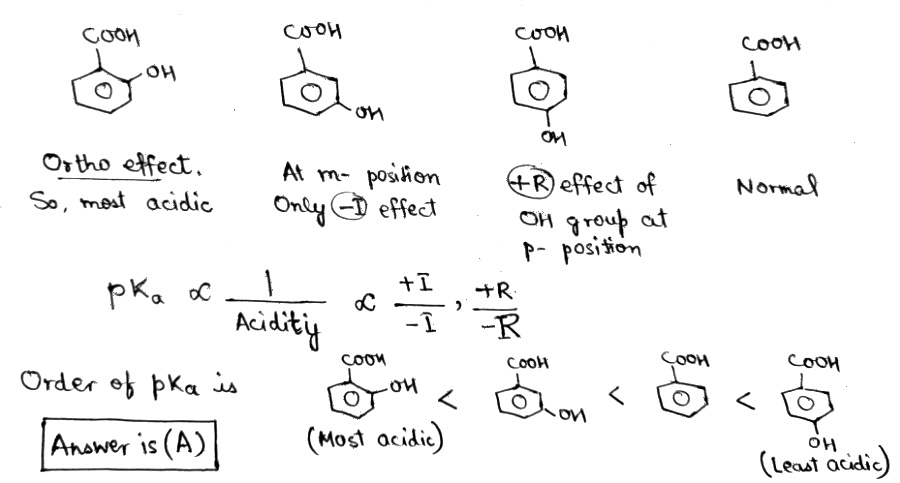 COOH
OH
COOH
OH
COOH
OH
COOH
Ortho effect.
So, most acidic
At m- position
Only -I effect
+R effect of
OH group at
p- position
Normal
pKa ∝ 1/Acidity ∝ +I/-I, +R/-R
Order of pKa is
COOH
OH
<
COOH
OH
<
COOH
<
COOH
OH
(Most acidic)
(Least acidic)
Answer is (A)